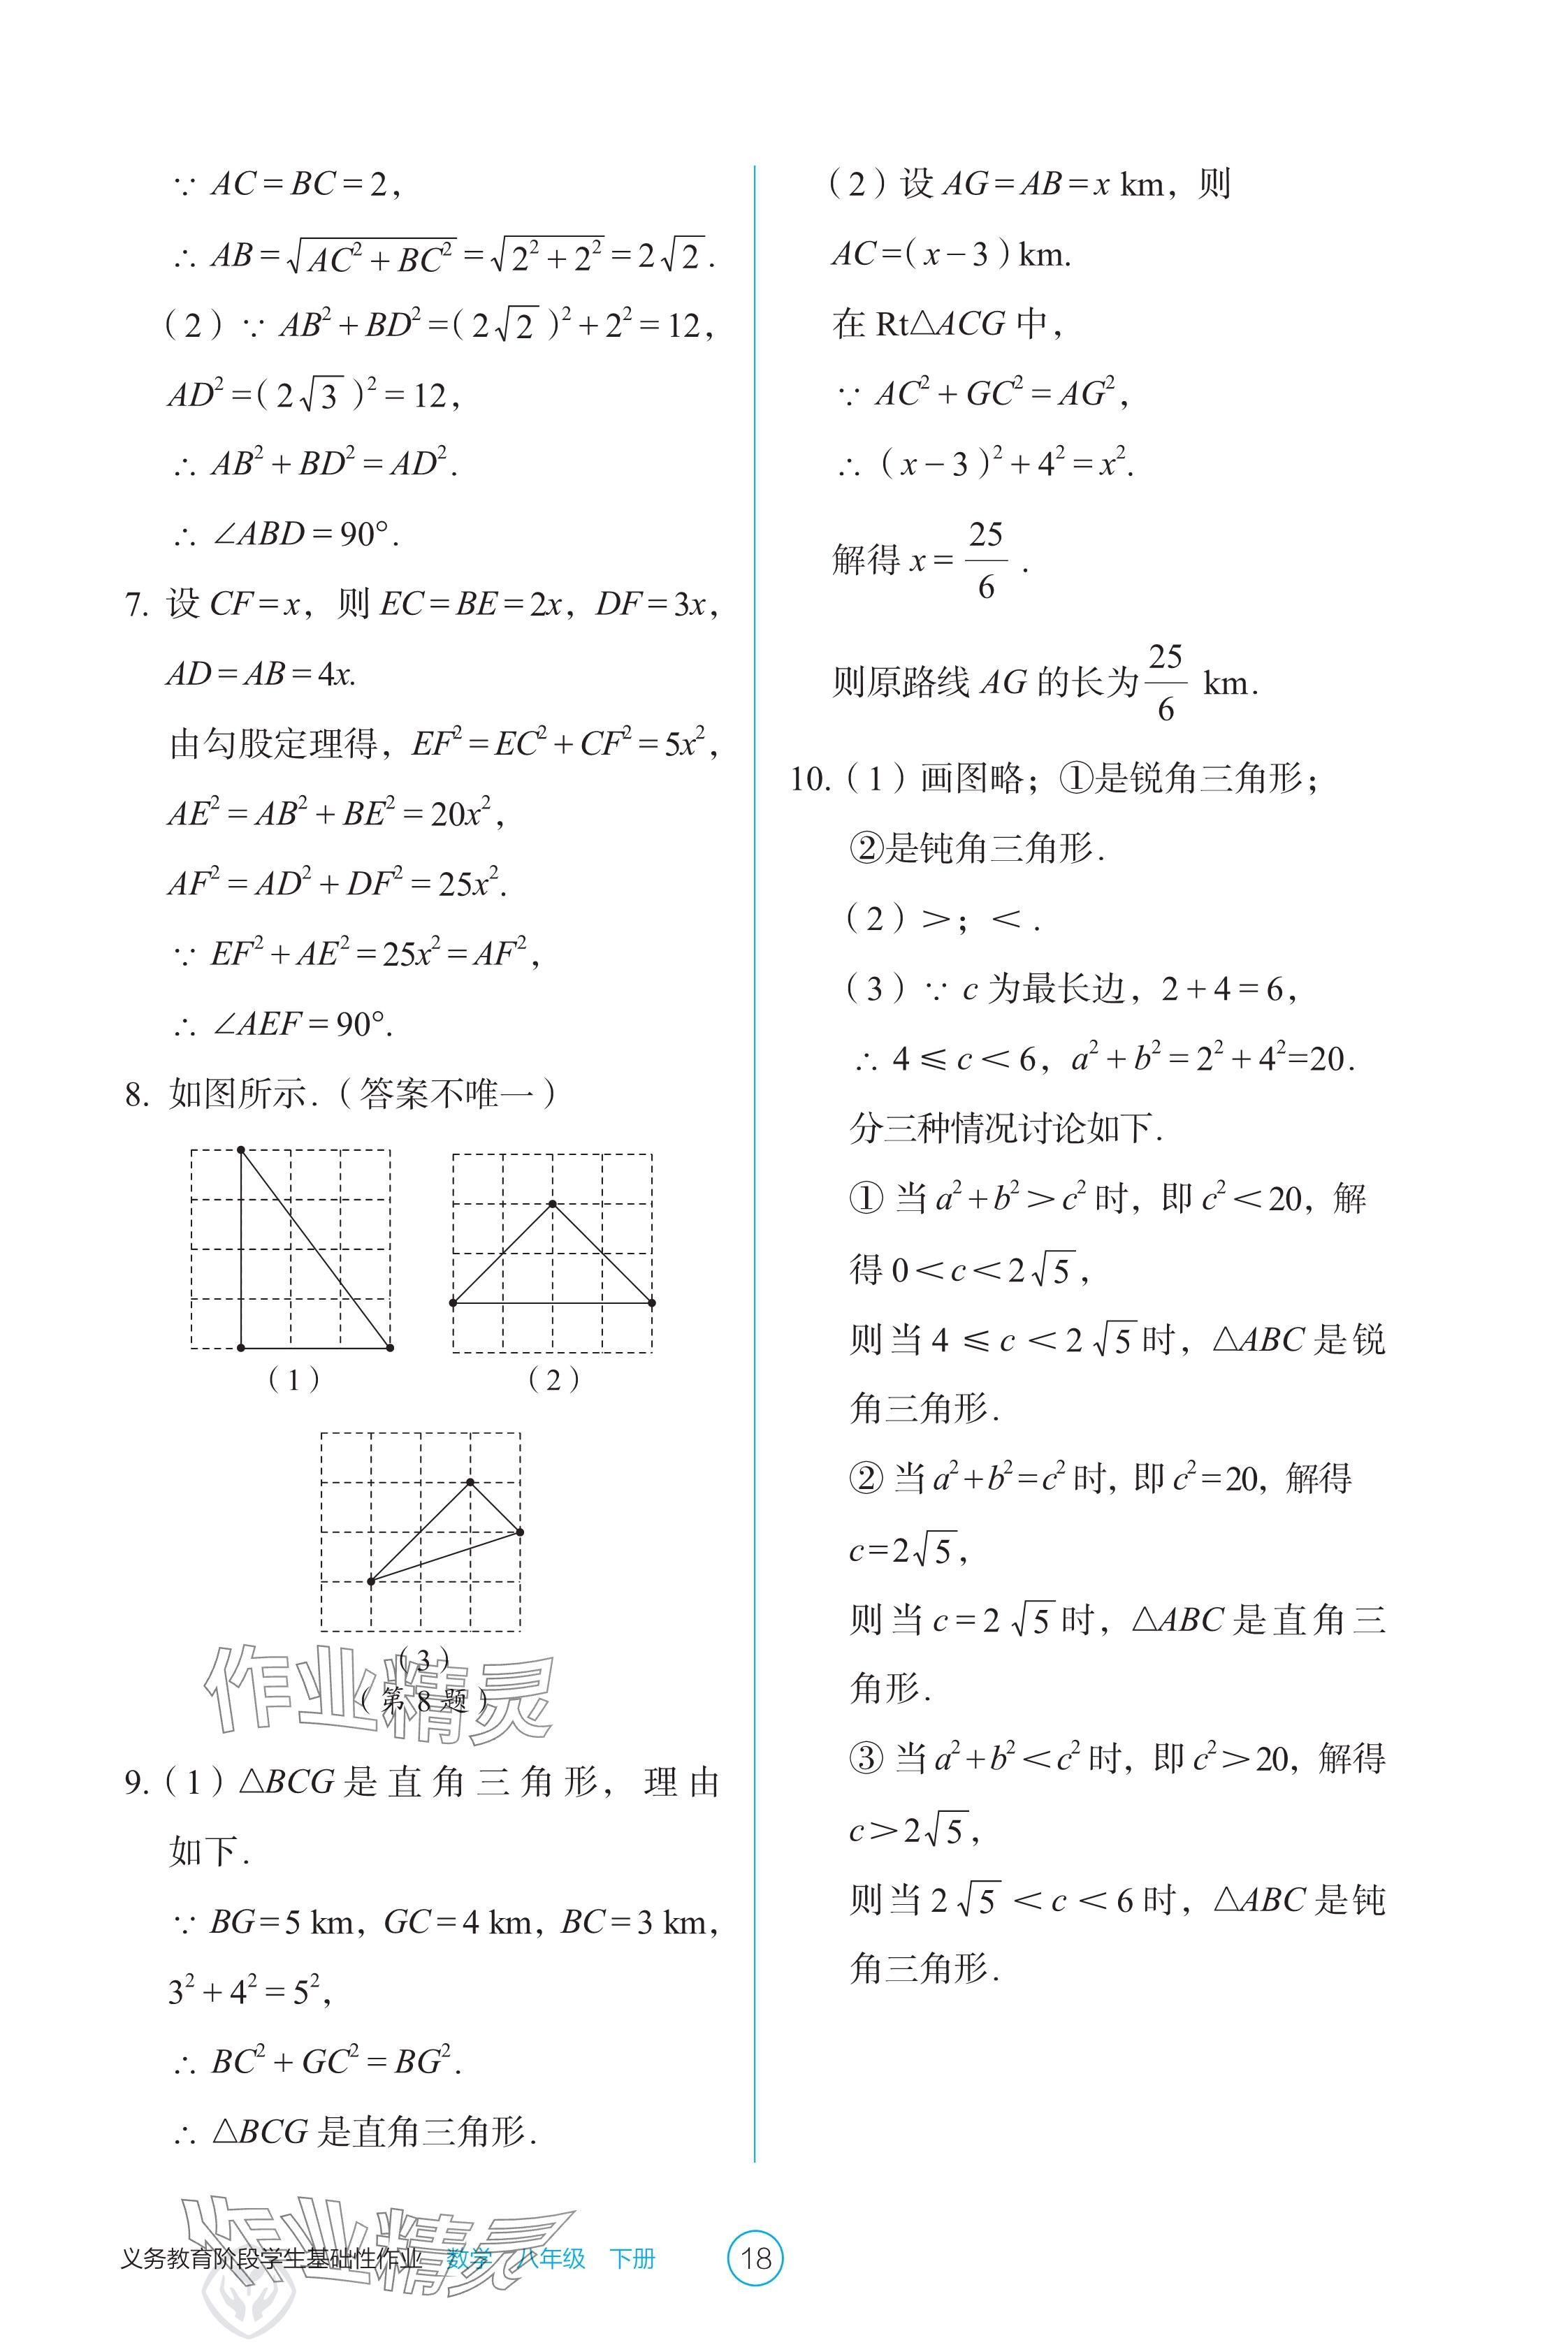 ∵ AC=BC=2,
∴ AB=√(AC²+BC²)=√(2²+2²)=2√2.
（2）∵ AB²+BD²=(2√2)²+2²=12,
AD²=(2√3)²=12,
∴ AB²+BD²=AD².
∴ ∠ABD=90°.
7. 设 CF=x，则 EC=BE=2x，DF=3x，
AD=AB=4x.
由勾股定理得，EF²=EC²+CF²=5x²，
AE²=AB²+BE²=20x²，
AF²=AD²+DF²=25x².
∵ EF²+AE²=25x²=AF²，
∴ ∠AEF=90°.
8. 如图所示.（答案不唯一）
（1）
（2）
（3）
（第 8 题）
9.（1）△BCG 是直角三角形，理由
如下.
∵ BG=5 km，GC=4 km，BC=3 km，
3²+4²=5²，
∴ BC²+GC²=BG².
∴ △BCG 是直角三角形.
（2）设 AG=AB=x km，则
AC=(x−3)km.
在 Rt△ACG 中，
∵ AC²+GC²=AG²，
∴ (x−3)²+4²=x².
解得 x=25/6.
则原路线 AG 的长为25/6 km.
10.（1）画图略；①是锐角三角形；
②是钝角三角形.
（2）＞；＜.
（3）∵ c 为最长边，2+4=6，
∴ 4≤c＜6，a²+b²=2²+4²=20.
分三种情况讨论如下.
① 当 a²+b²＞c² 时，即 c²＜20，解
得 0＜c＜2√5，
则当 4≤c＜2√5 时，△ABC 是锐
角三角形.
② 当 a²+b²=c² 时，即 c²=20，解得
c=2√5，
则当 c=2√5 时，△ABC 是直角三
角形.
③ 当 a²+b²＜c² 时，即 c²＞20，解得
c＞2√5，
则当 2√5＜c＜6 时，△ABC 是钝
角三角形.
作业精灵
作业精灵
义务教育阶段学生基础性作业 数学 八年级 下册
18